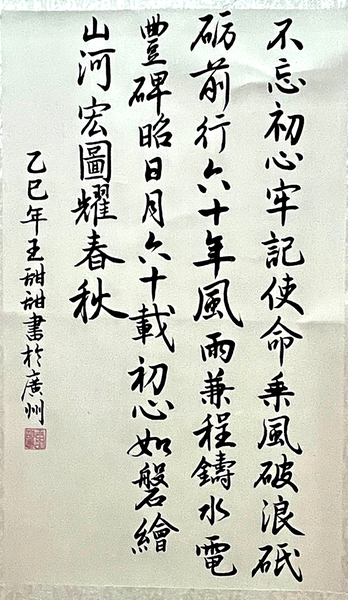 不忘初心牢記使命乘風破浪砥
砺前行六十年風雨兼程鑄水電
豐碑昭日月六十載初心如磐繪
山河宏圖耀春秋
乙巳年王甜甜書於廣州